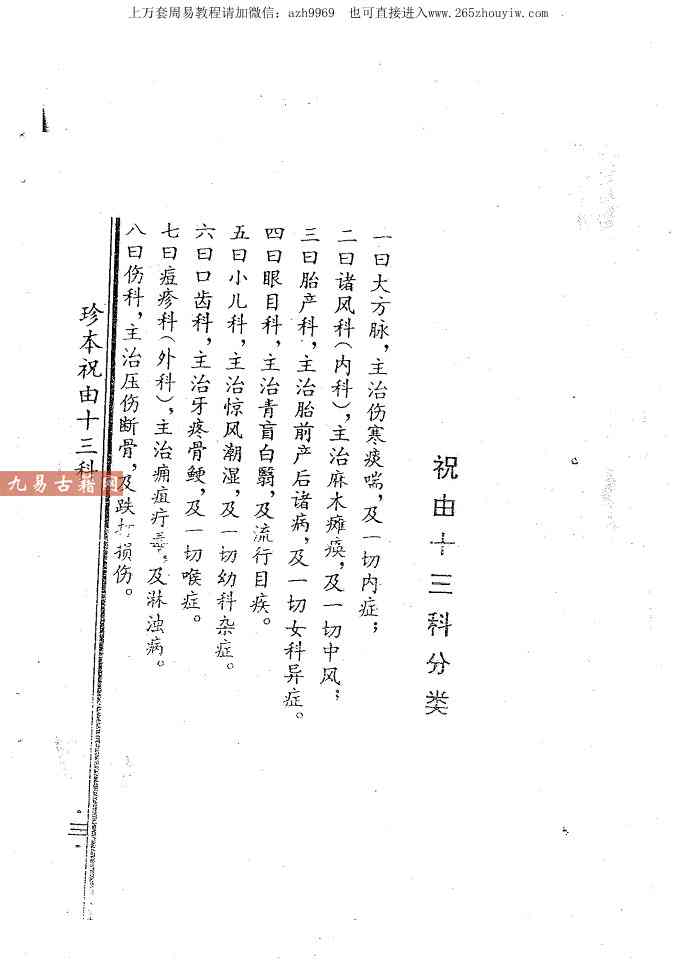 上万套周易教程请加微信：azh9969　也可直接进入www.265zhouyiw.com
祝由十三科分类
一曰大方脉，主治伤寒痰喘，及一切内症；
二曰诸风科（内科），主治麻木瘫痪，及一切中风；
三曰胎产科，主治胎前产后诸病，及一切女科异症。
四曰眼目科，主治青盲白翳，及流行目疾。
五曰小儿科，主治惊风潮湿，及一切幼科杂症。
六曰口齿科，主治牙疼骨鲠，及一切喉症。
七曰痘疹科（外科），主治痈疽疔毒，及淋浊病。
八曰伤科，主治压伤断骨，及跌打损伤。
珍本祝由十三科
·三·
九易古籍网